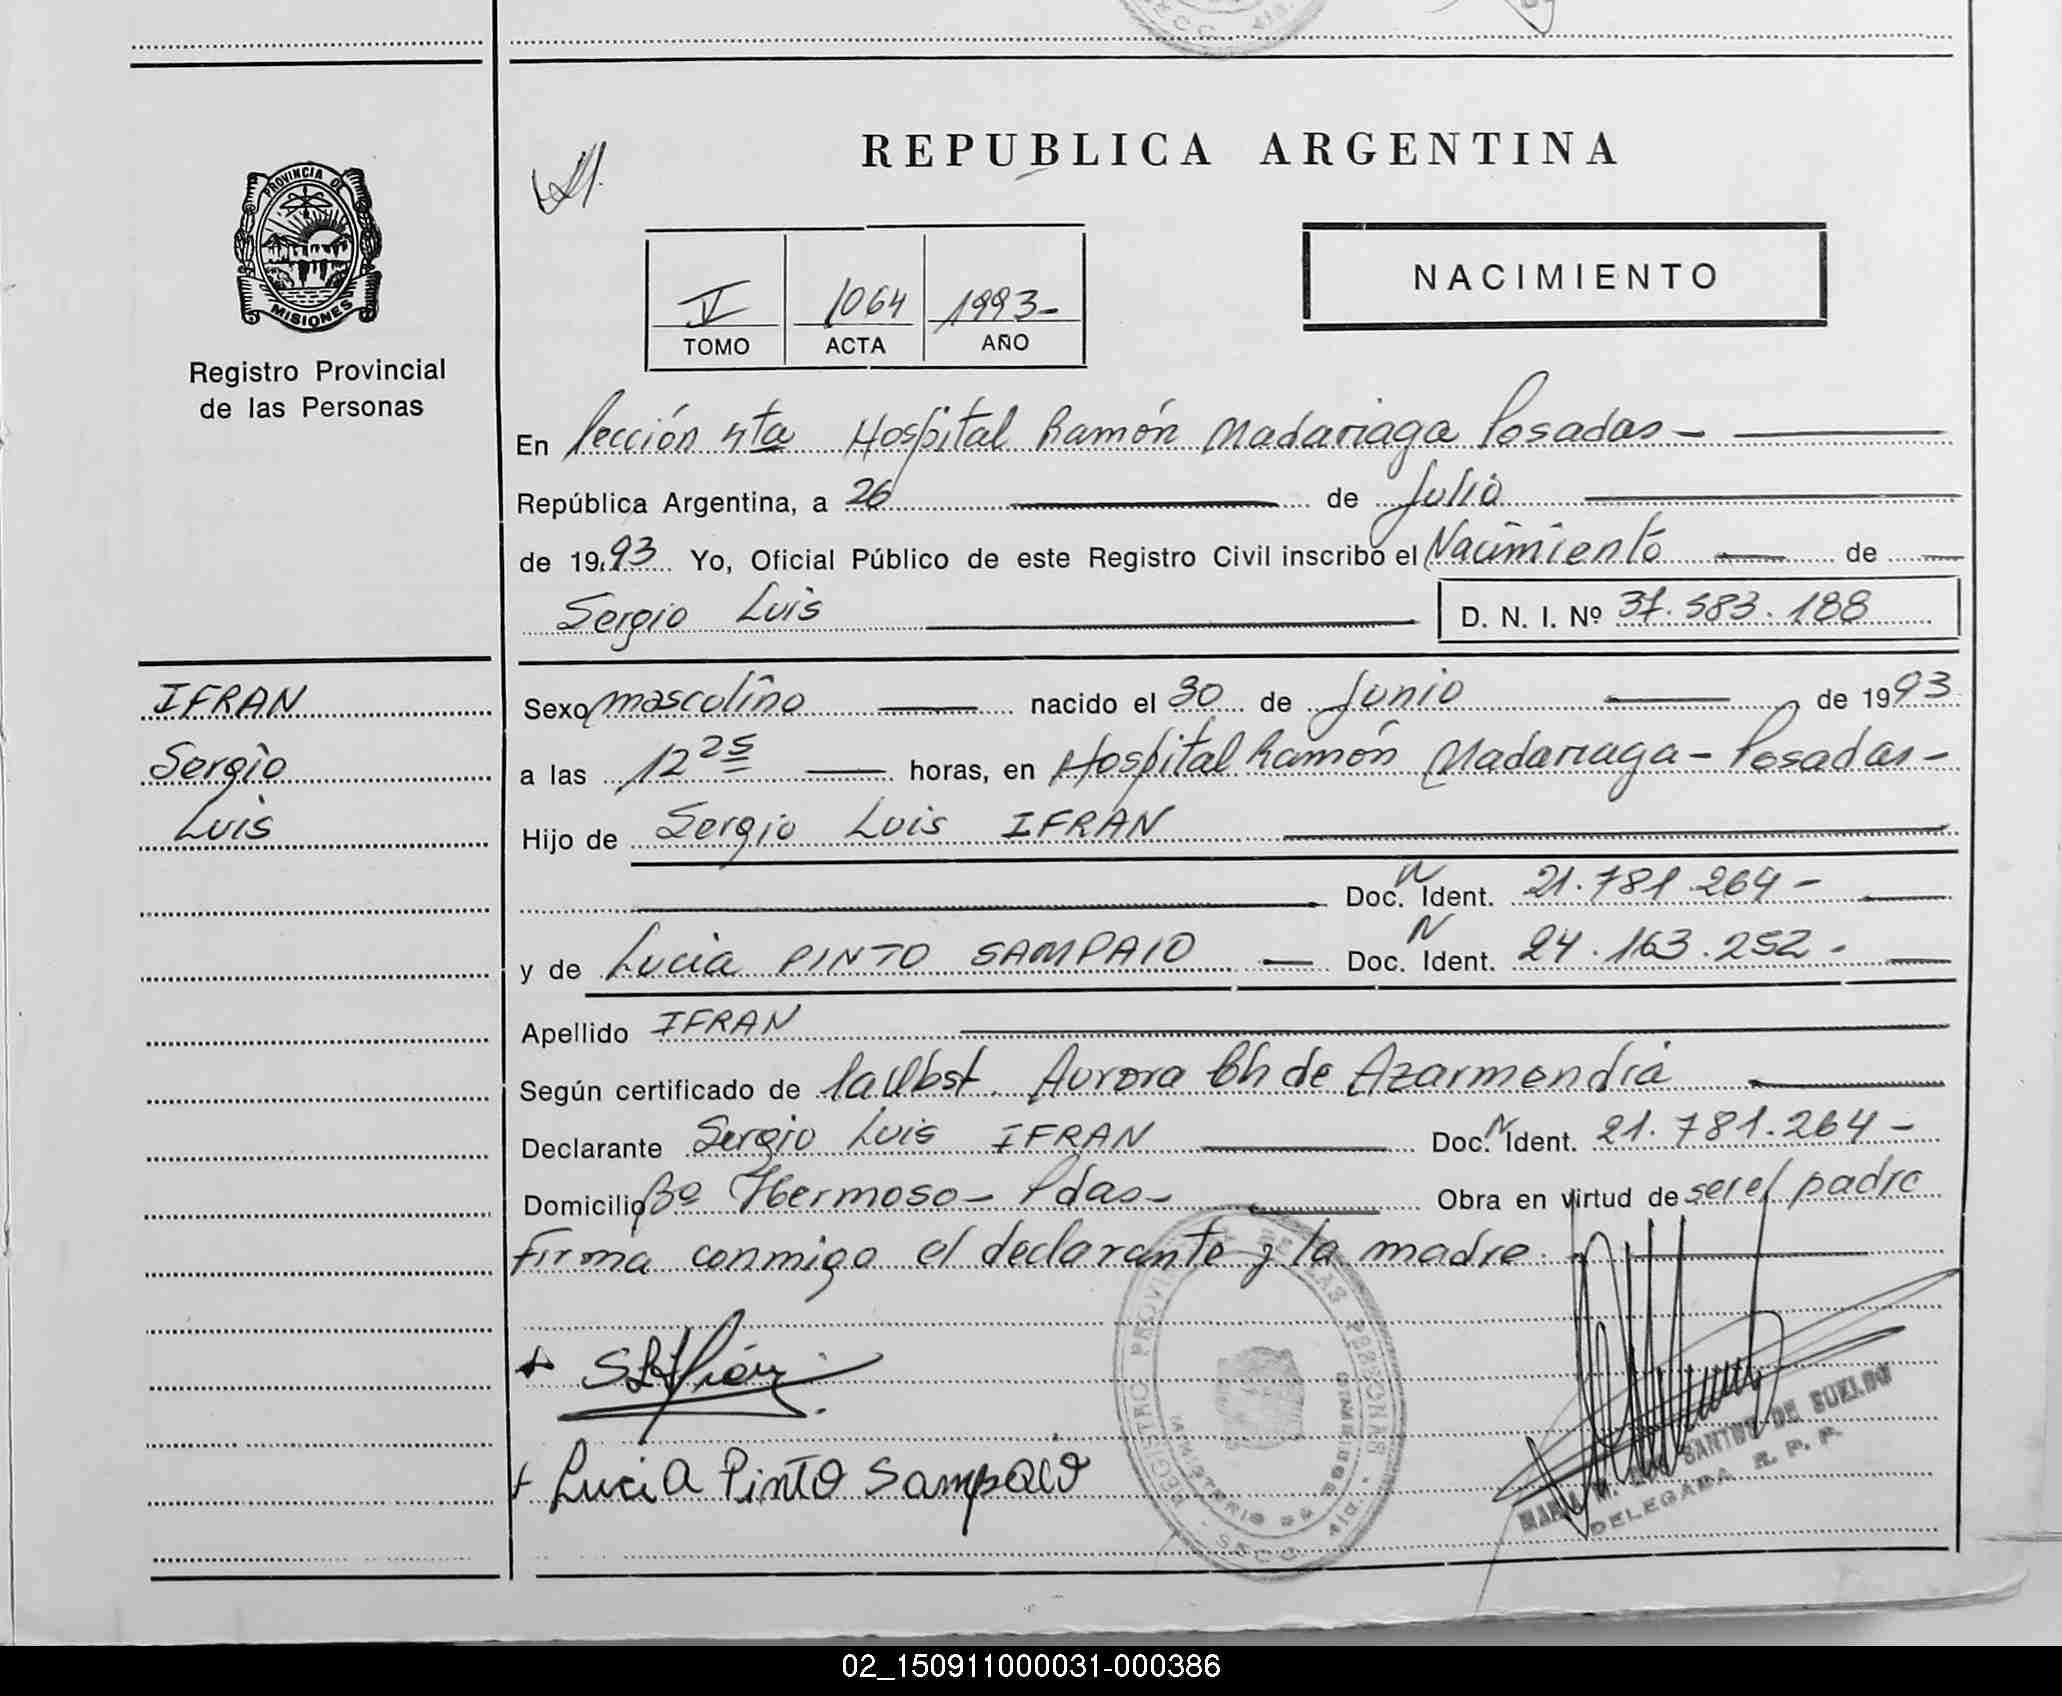 REPUBLICA ARGENTINA
PROVINCIA DE
MISIONES
Registro Provincial
de las Personas
NACIMIENTO
V 1064 1993-
TOMO ACTA AÑO
En Sección 4ta Hospital Ramón Madariaga Posadas-
República Argentina, a 26 de Julio
de 1993 Yo, Oficial Público de este Registro Civil inscribo el Nacimiento de
Sergio Luis D. N. I. Nº 37.583.188
IFRAN
Sergio
Luis
Sexo masculino nacido el 30 de Junio de 1993
a las 12 25 horas, en Hospital Ramón Madariaga - Posadas-
Hijo de Sergio Luis IFRAN
Doc. N Ident. 21.781.264-
y de Lucia PINTO SAMPAIO Doc. N Ident. 24.163.252-
Apellido IFRAN
Según certificado de la Obst. Aurora Ch de Azarmendia
Declarante Sergio Luis IFRAN Doc. N Ident. 21.781.264-
Domicilio Bº Hermoso- Pdas- Obra en virtud de ser el padre
Firma conmigo el declarante y la madre.
Lucia Pinto Sampaio
REGISTRO PROVINCIAL DE LAS PERSONAS
MINISTERIO DE GOBIERNO
SANTOS DE SUELDO
DELEGADA R. P. P.
02_150911000031-000386